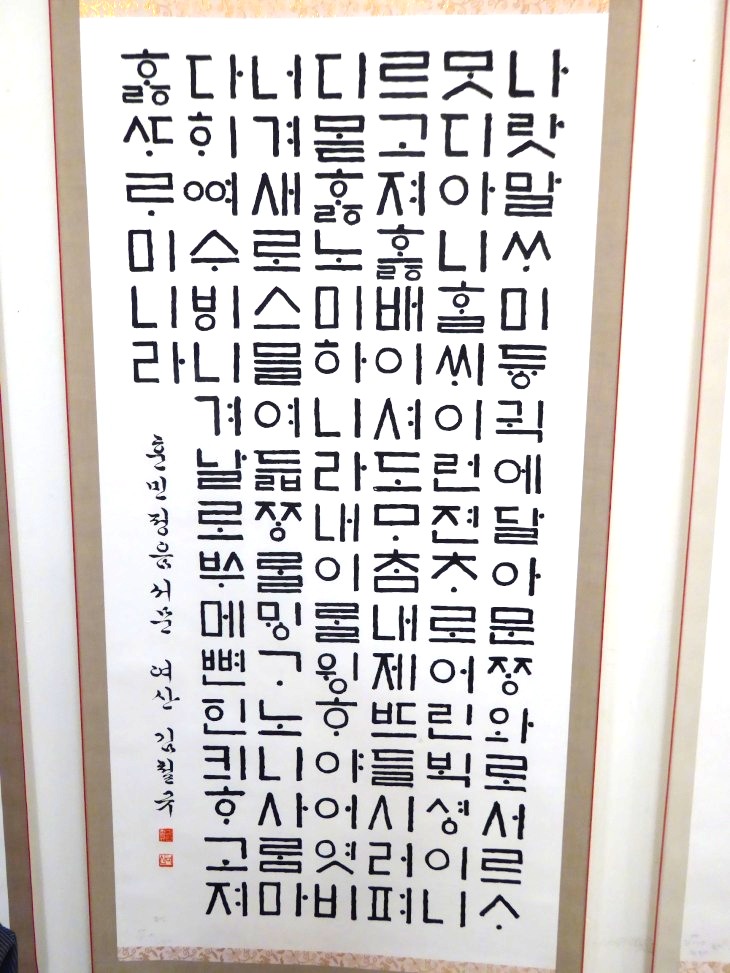 나랏말ᄊᆞ미듕귁에달아문ᄍᆞᆼ와로서르ᄉᆞ
ᄆᆞᆺ디아니ᄒᆞᆯᄊᆡ이런젼ᄎᆞ로어린ᄇᆡᆨ셩이니
르고져ᄒᆞᇙ배이셔도ᄆᆞᄎᆞᆷ내제ᄠᅳ들시러펴
디몯ᄒᆞᇙ노미하니라내이ᄅᆞᆯ윙ᄒᆞ야어엿비
너겨새로스믈여듧ᄍᆞᆼᄅᆞᆯᄆᆡᇰᄀᆞ노니사ᄅᆞᆷ마
다ᄒᆡᅇᅧ수ᄫᅵ니겨날로ᄡᅮ메뼌한킈ᄒᆞ고져
ᄒᆞᇙᄯᆞᄅᆞ미니라
훈민정음서문 여산